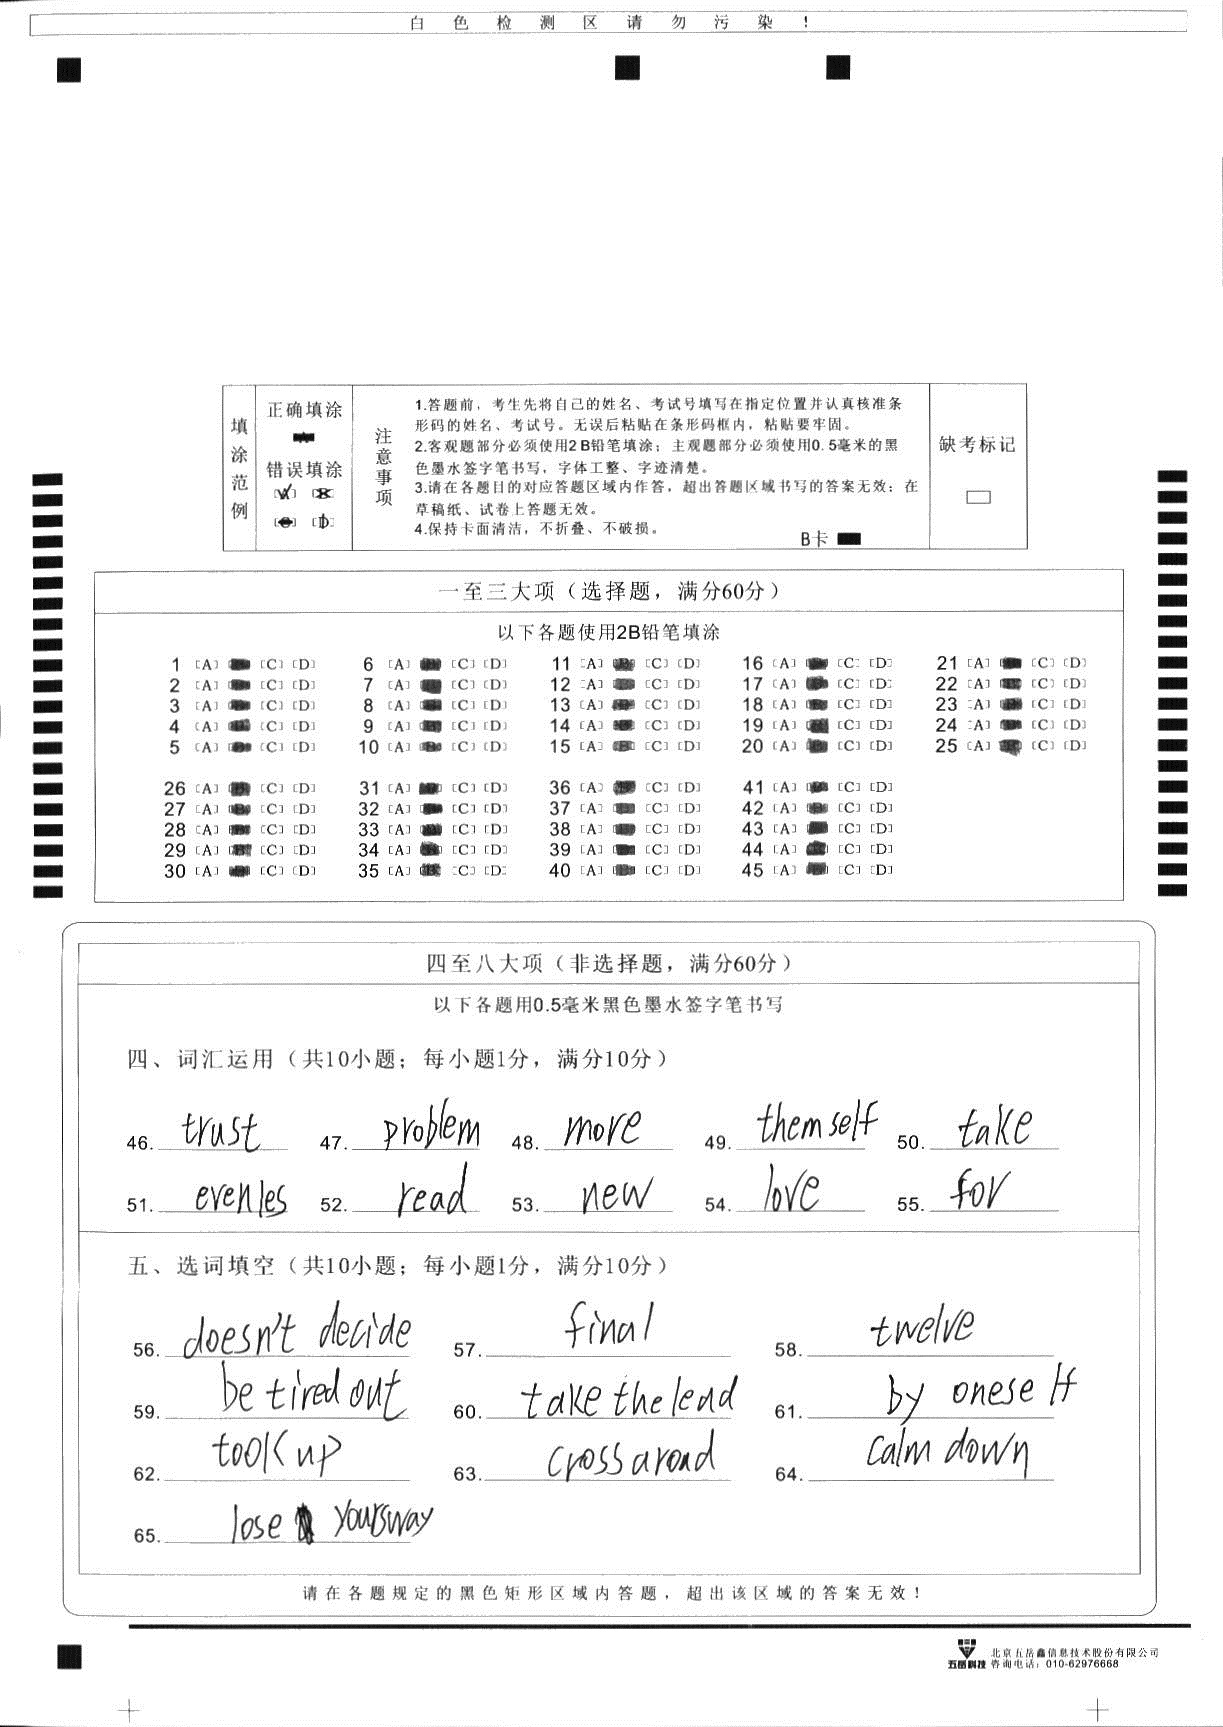 白色检测区请勿污染!
填涂范例
正确填涂
错误填涂
[A] [B]
[C] [D]
注意事项
1.答题前，考生先将自己的姓名、考试号填写在指定位置并认真核准条
形码的姓名、考试号。无误后粘贴在条形码框内，粘贴要牢固。
2.客观题部分必须使用2B铅笔填涂；主观题部分必须使用0.5毫米的黑
色墨水签字笔书写，字体工整、字迹清楚。
3.请在各题目的对应答题区域内作答，超出答题区域书写的答案无效；在
草稿纸、试卷上答题无效。
4.保持卡面清洁，不折叠、不破损。
B卡
缺考标记
一至三大项（选择题，满分60分）
以下各题使用2B铅笔填涂
1 [A] [C] [D] 6 [A] [C] [D] 11 [A] [C] [D] 16 [A] [C] [D] 21 [A] [C] [D]
2 [A] [C] [D] 7 [A] [C] [D] 12 [A] [C] [D] 17 [A] [C] [D] 22 [A] [C] [D]
3 [A] [C] [D] 8 [A] [C] [D] 13 [A] [C] [D] 18 [A] [C] [D] 23 [A] [C] [D]
4 [A] [C] [D] 9 [A] [C] [D] 14 [A] [C] [D] 19 [A] [C] [D] 24 [A] [C] [D]
5 [A] [C] [D] 10 [A] [C] [D] 15 [A] [C] [D] 20 [A] [C] [D] 25 [A] [C] [D]
26 [A] [C] [D] 31 [A] [C] [D] 36 [A] [C] [D] 41 [A] [C] [D]
27 [A] [C] [D] 32 [A] [C] [D] 37 [A] [C] [D] 42 [A] [C] [D]
28 [A] [C] [D] 33 [A] [C] [D] 38 [A] [C] [D] 43 [A] [C] [D]
29 [A] [C] [D] 34 [A] [C] [D] 39 [A] [C] [D] 44 [A] [C] [D]
30 [A] [C] [D] 35 [A] [C] [D] 40 [A] [C] [D] 45 [A] [C] [D]
四至八大项（非选择题，满分60分）
以下各题用0.5毫米黑色墨水签字笔书写
四、词汇运用（共10小题；每小题1分，满分10分）
46. trust 47. problem 48. more 49. themself 50. take
51. evenles 52. read 53. new 54. love 55. for
五、选词填空（共10小题；每小题1分，满分10分）
56. doesn't decide 57. final 58. twelve
59. be tired out 60. take the lead 61. by oneself
62. took up 63. cross a road 64. calm down
65. lose yoursway
请在各题规定的黑色矩形区域内答题，超出该区域的答案无效!
五岳科技 北京五岳鑫信息技术股份有限公司
咨询电话：010-62976668